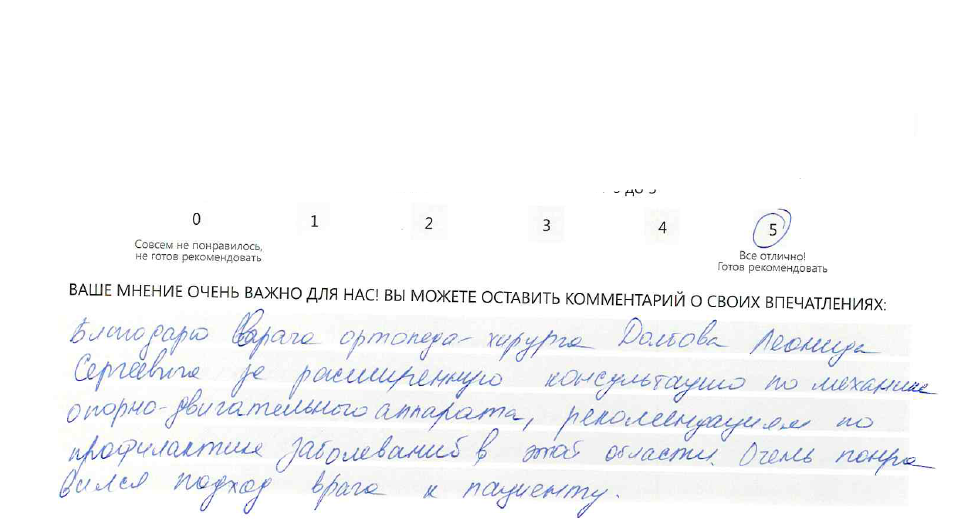 0 1 2 3 4 5
Совсем не понравилось,
не готов рекомендовать
Все отлично!
Готов рекомендовать
ВАШЕ МНЕНИЕ ОЧЕНЬ ВАЖНО ДЛЯ НАС! ВЫ МОЖЕТЕ ОСТАВИТЬ КОММЕНТАРИЙ О СВОИХ ВПЕЧАТЛЕНИЯХ:
Благодарю врача ортопеда-хирурга Леонида
Сергеевича за расширенную консультацию по механике
опорно-двигательного аппарата, рекомендациям по
профилактике заболеваний в этой области. Очень понра
вился подход врача к пациенту.